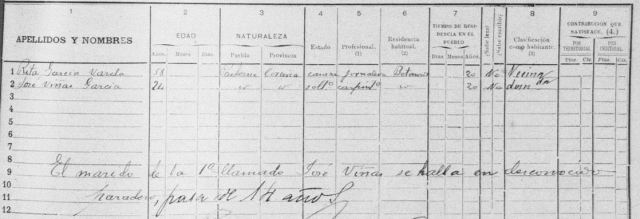 1 2 3 4 5 6 7 8 9
APELLIDOS Y NOMBRES
EDAD NATURALEZA Estado Profesional. (1) Residencia habitual. (2) TIEMPO DE RESIDENCIA EN EL PUEBLO Clasificación como habitante. (3) CONTRIBUCIÓN QUE SATISFACE. (4.)
Años. Meses Días Pueblo Provincia Días Meses Años. POR TERRITORIAL POR INDUSTRIAL
Ptas. Cts. Ptas. Cts.
1 Rita García Varela 58 Coruña casada jornalera Betanzos 20 No Vecina
2 José Viñas García 24 " " soltº carpintº " 20 No
3
4
5
6
7
8
9 El marido de la 1ª llamado José Viñas se halla en desconocido
10 paradero, pasa de 14 años
11
12